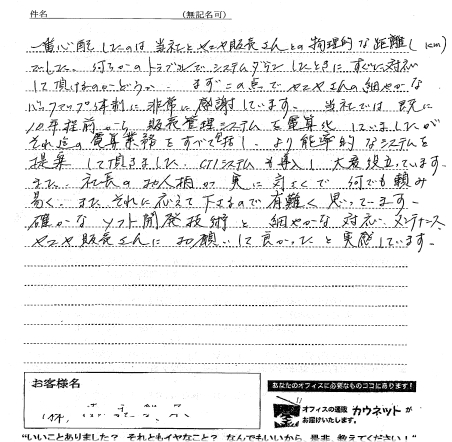 件名 (無記名可)
一番心配したのは当社とヤマヤ販長さんとの物理的な距離( km)
でした。何らかのトラブルでシステムダウンしたときにすぐに対応
して頂けるのかどうか まずこの点でヤマヤさんの細やかな
バックアップ体制に非常に感謝しています。当社では既に
10年程前から販売管理システムを電算化していましたが
それ迄の電算業務をすべて包括し、より能率的なシステムを
提案して頂きました。CTIシステムも導入し大変役立っています。
また、社長のお人柄が実に 良くて何でも頼み
易く、またそれに応えて下さるので有難く思っています。
確かなソフト開発技術と細やかな対応、メンテナンス
ヤマヤ販長さんにお願いして良かったと実感しています。
お客様名
あなたのオフィスに必要なものココに有ります!
オフィスの通販 カウネットが
お届けいたします。
"いいことありました? それともイヤなこと? なんでもいいから、是非、教えてください!"